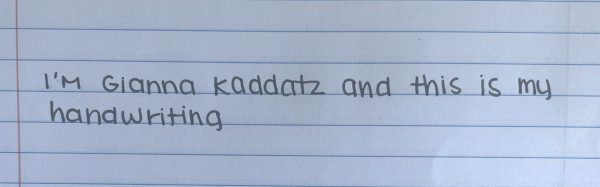 I'M Gianna Kaddatz and this is my
handwriting